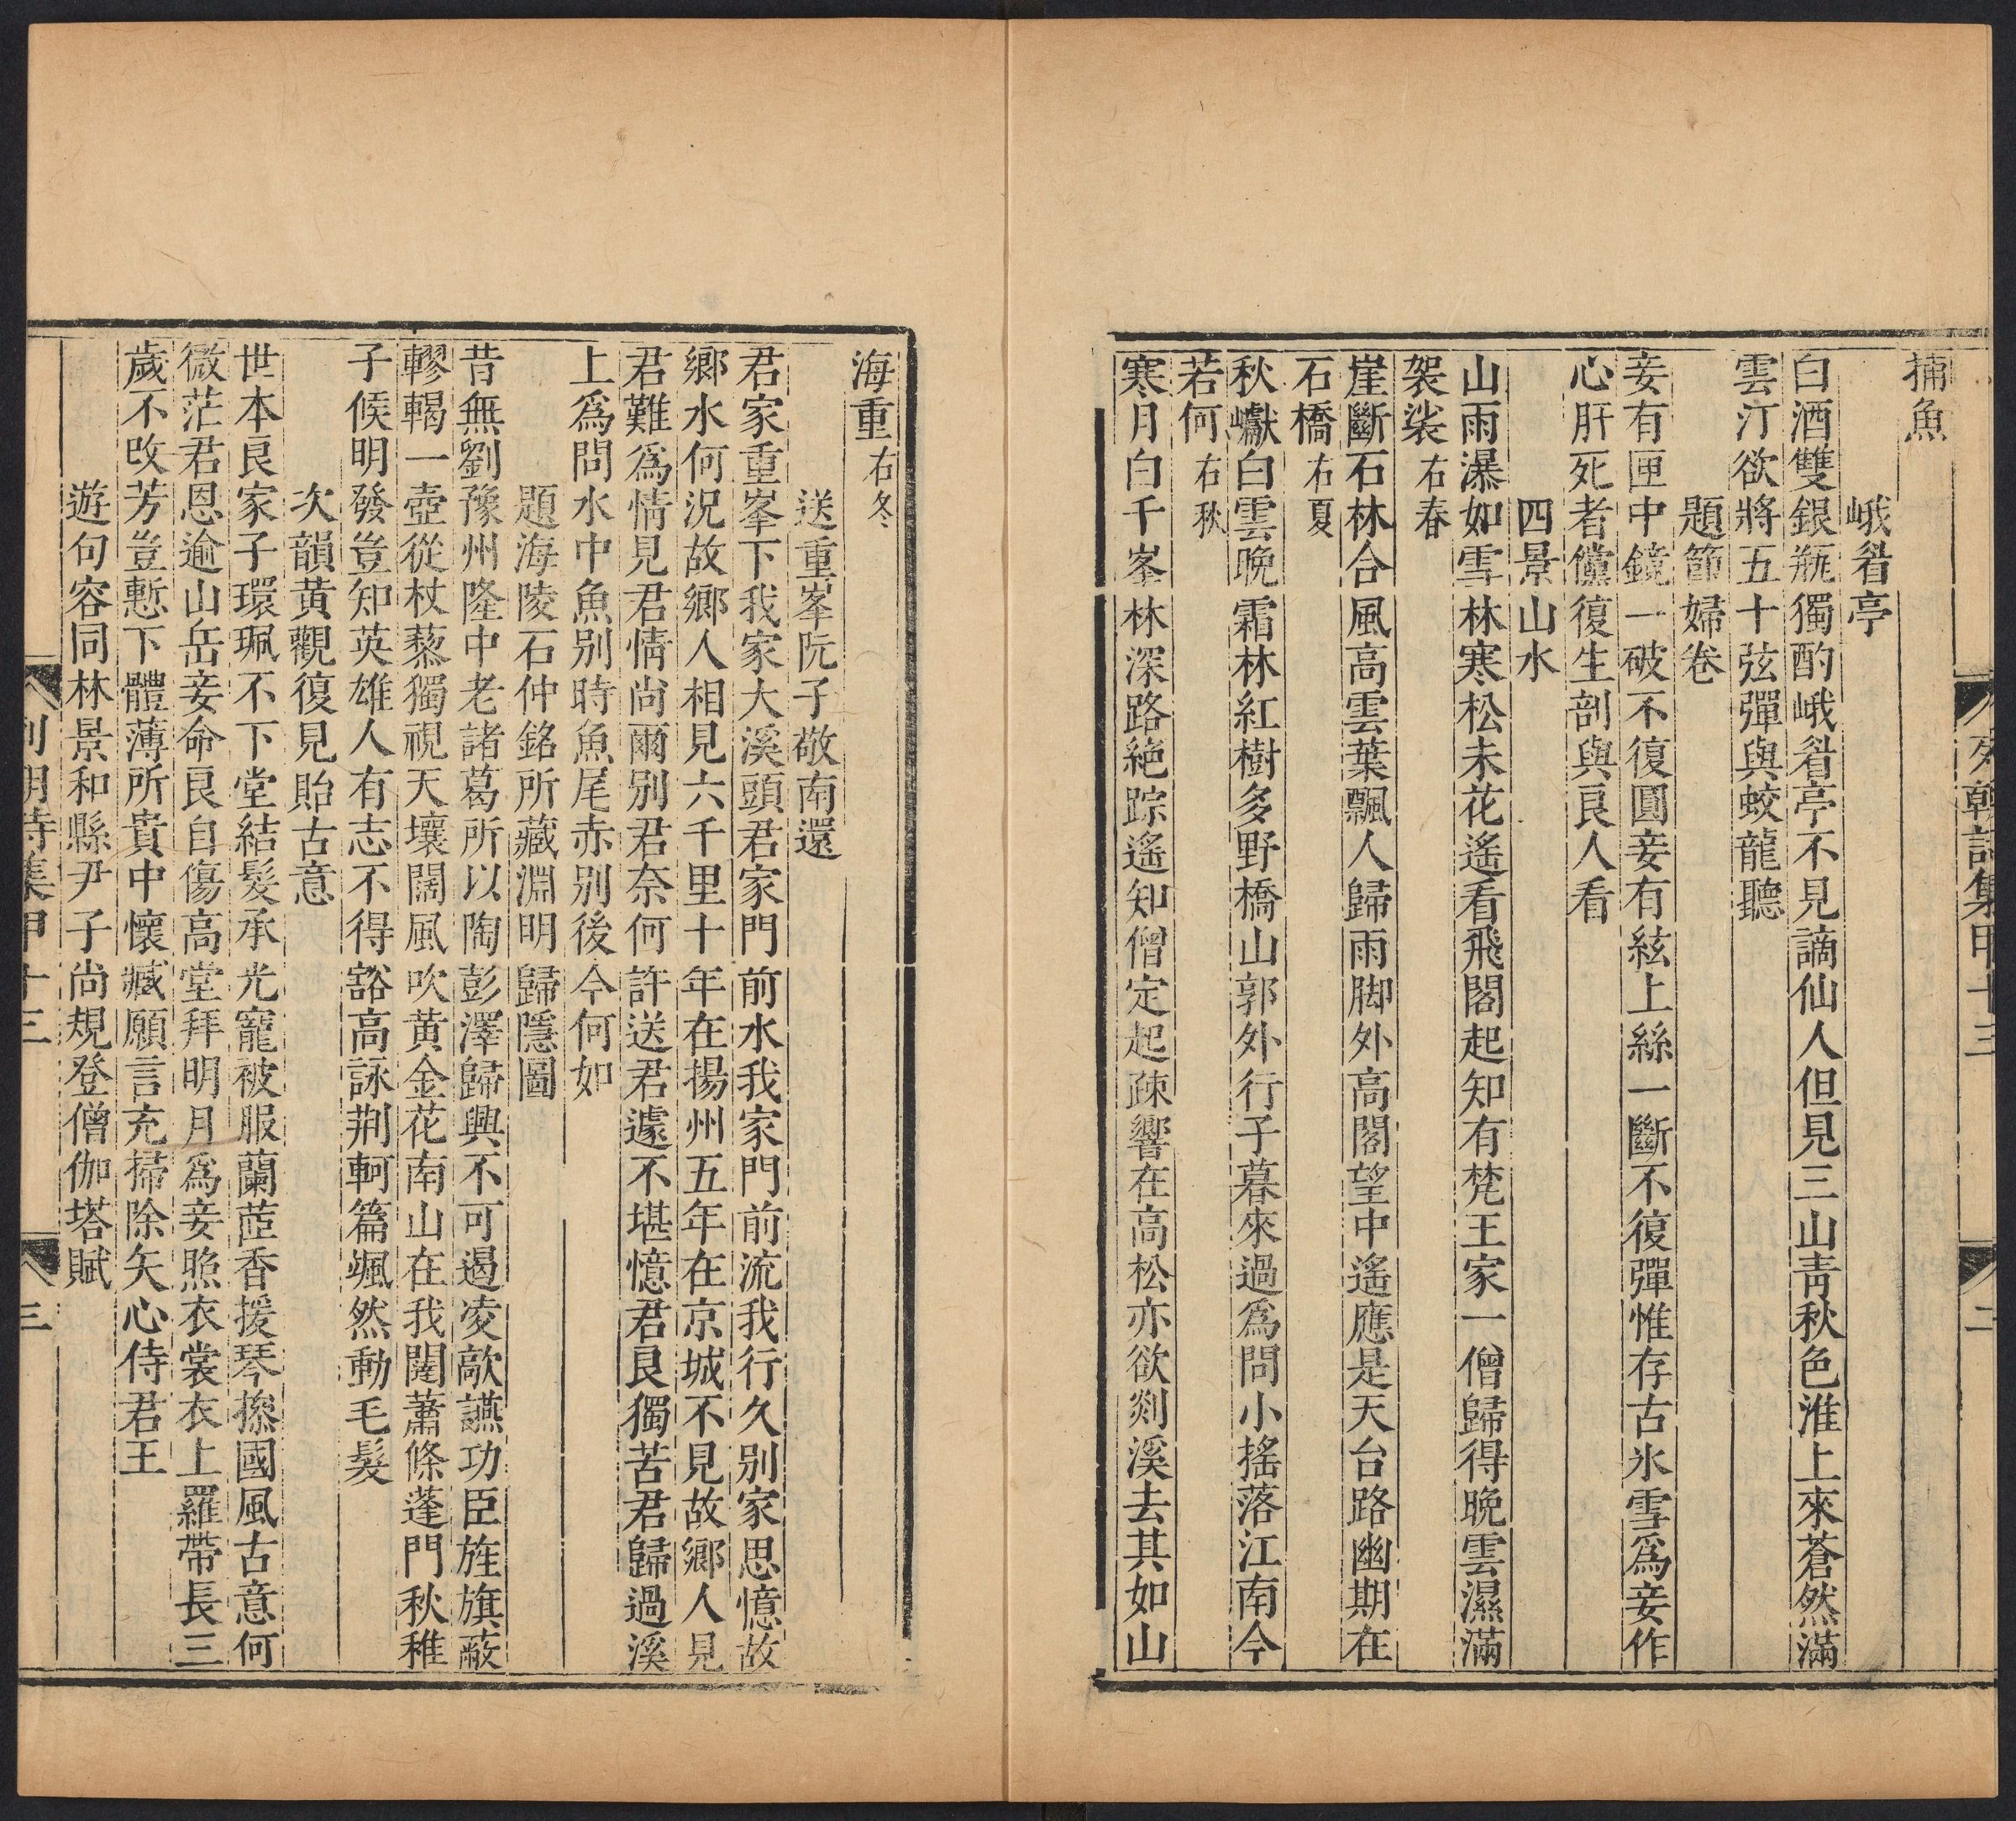 列朝詩集甲十三
二
捕魚
峨眉亭
白酒雙銀瓶獨酌峨眉亭不見謫仙人但見三山靑秋色淮上來蒼然滿
雲汀欲將五十弦彈與蛟龍聽
題節婦卷
妾有匣中鏡一破不復圓妾有絃上絲一斷不復彈惟存古氷雪爲妾作
心肝死者儻復生剖與良人看
四景山水
山雨瀑如雪林寒松未花遙看飛閣起知有梵王家一僧歸得晚雲濕滿
袈裟右春
崖斷石林合風高雲葉飄人歸雨脚外高閣望中遙應是天台路幽期在
石橋右夏
秋巘白雲晚霜林紅樹多野橋山郭外行子暮來過爲問小搖落江南今
若何右秋
寒月白千峯林深路絶踪遙知僧定起疎響在高松亦欲剡溪去其如山
海重右冬
送重峯阮子敬南還
君家重峯下我家大溪頭君家門前水我家門前流我行久別家思憶故
鄉水何況故鄉人相見六千里十年在揚州五年在京城不見故鄉人見
君難爲情見君情尚爾別君奈何許送君遽不堪憶君良獨苦君歸過溪
上爲問水中魚別時魚尾赤別後今何如
題海陵石仲銘所藏淵明歸隱圖
昔無劉豫州隆中老諸葛所以陶彭澤歸興不可遏凌歊讌功臣旌旗蔽
轇轕一壺從杖藜獨視天壤闊風吹黃金花南山在我闥蕭條蓬門秋稚
子候明發豈知英雄人有志不得豁高詠荆軻篇颯然動毛髮
次韻黃觀復見貽古意
世本良家子環珮不下堂結髮承光寵被服蘭茝香援琴摋國風古意何
微茫君恩逾山岳妾命良自傷高堂拜明月爲妾照衣裳衣上羅帶長三
歲不改芳豈慙下體薄所貴中懷臧願言充掃除矢心侍君王
遊句容同林景和縣尹子尚規登僧伽塔賦
列朝詩集甲十三
三